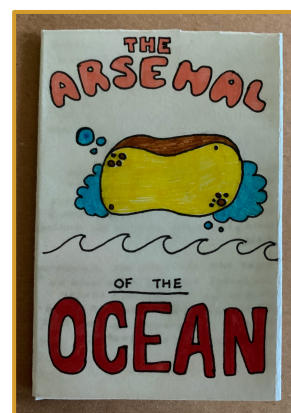 THE
ARSENAL
OF THE
OCEAN